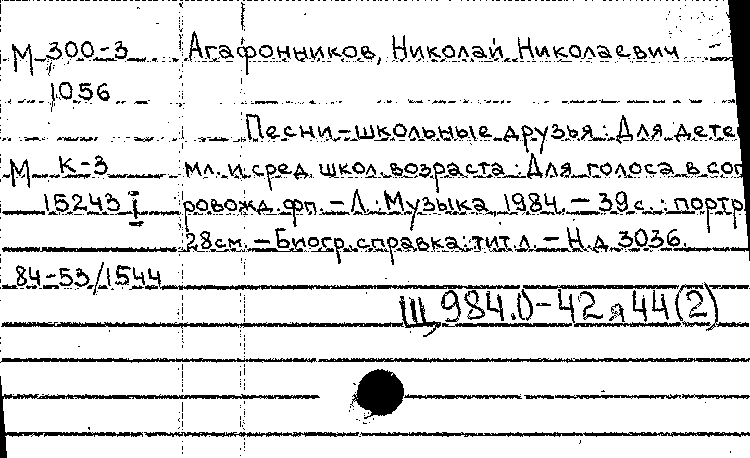 М 300-3 Агафонников, Николай Николаевич
1056
Песни-школьные друзья: Для дете
М К-3 мл. и сред. школ. возраста: Для голоса в соп
15243 I ровожд. фп. – Л.: Музыка, 1984. – 39 с.: портр.
28 см. – Биогр. справка: тит. л. – Н. д. 3036.
84-53/1544
Щ 984.0-42 я 44 (2)